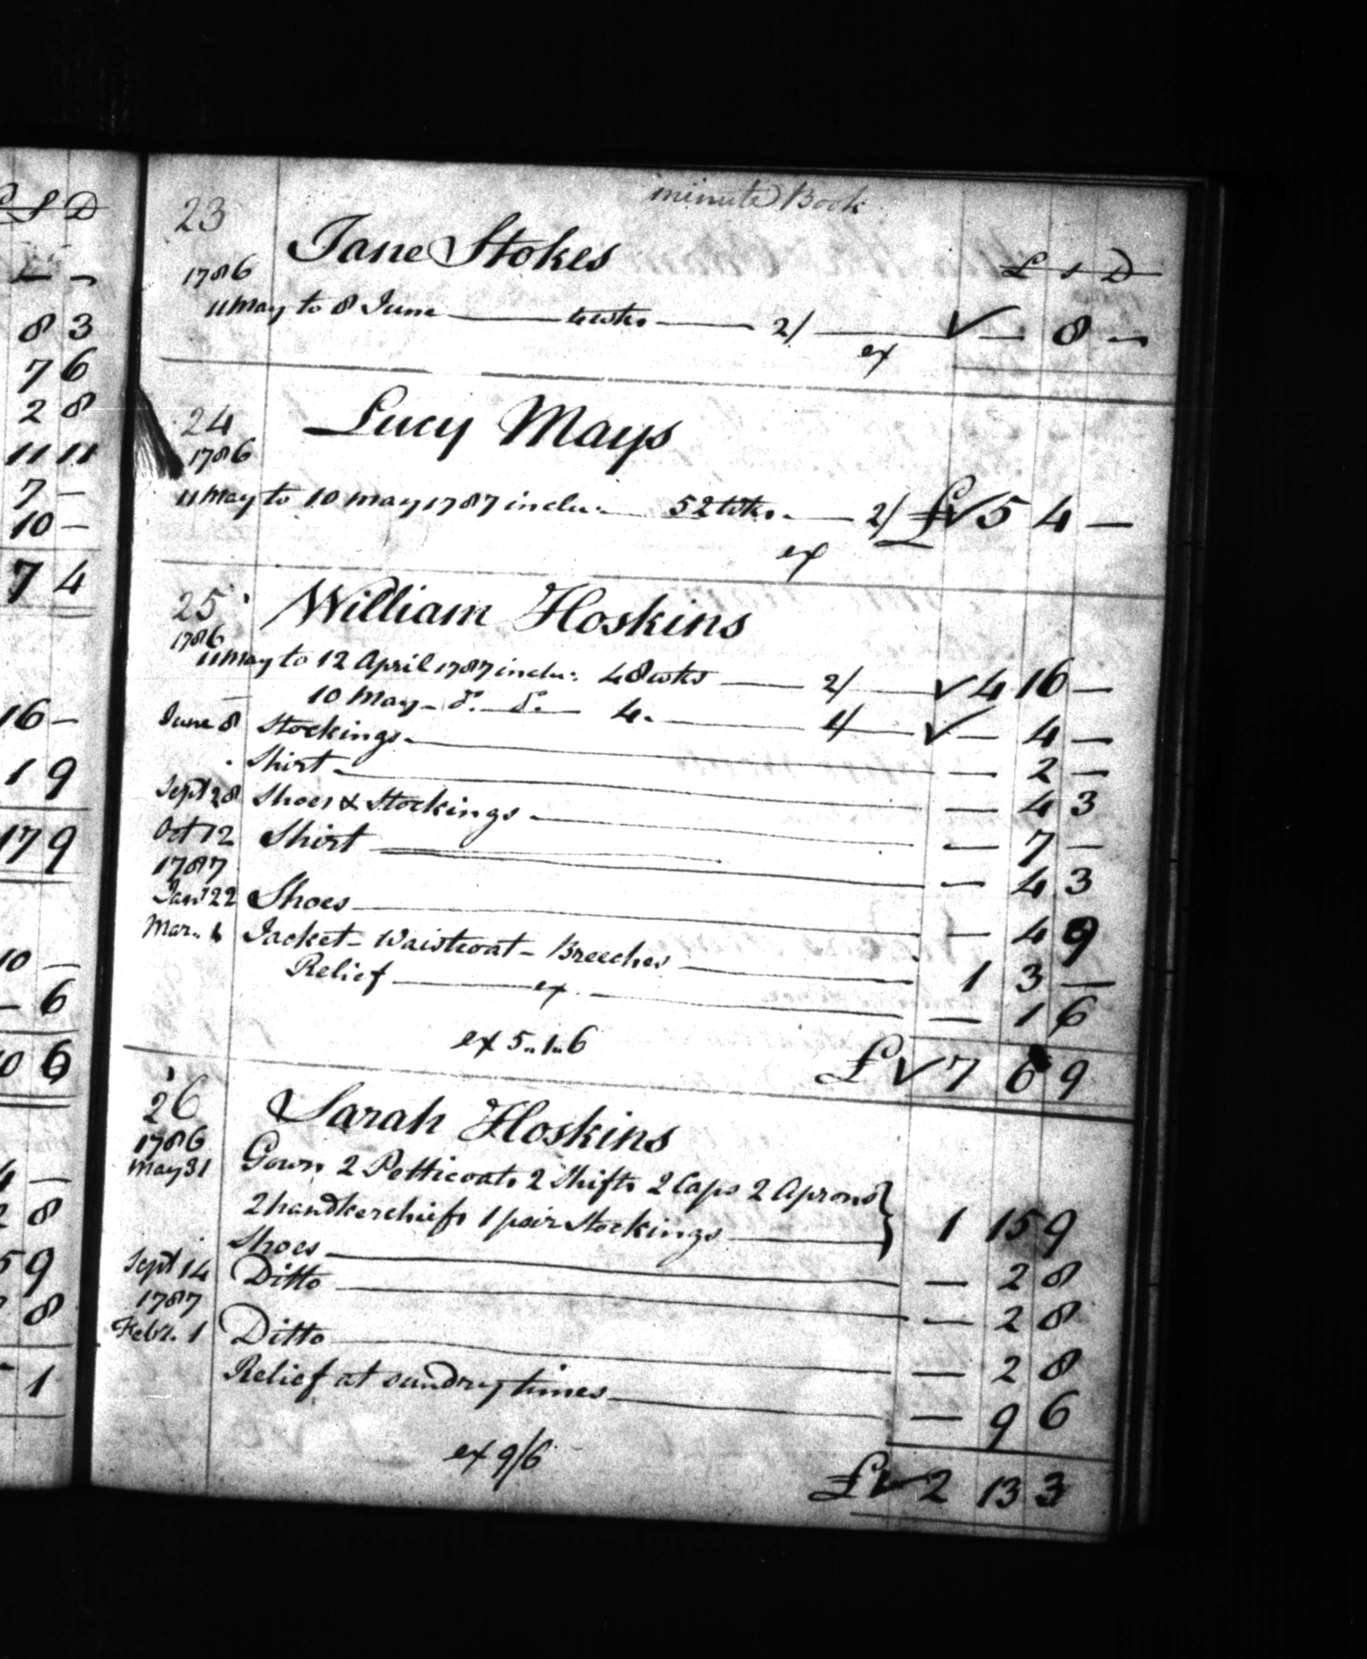 £ S D
— —
8 3
7 6
2 8
11 11
7 —
10 —
7 4
16 —
1 9
17 9
10 —
— 6
10 6
4 —
2 8
5 9
2 8
1
minute Book
23 Jane Stokes
1786 £ s D
11 May to 8 June — 4 wks — 2/ — ✓ — 8 —
ex
24 Lucy Mays
1786
11 May to 10 May 1787 inclu: — 52 wks. — 2/ £ ✓ 5 4 —
ex
25 William Hoskins
1786
11 May to 12 April 1787 inclu: 48 wks — 2/ — ✓ 4 16 —
10 May — do. — do. — 4. — 1/ — ✓ — 4 —
June 8 Stockings — — 2 —
Shirt — — 4 3
Sept 28 Shoes & Stockings — — 7 —
Oct 12 Shirt — — 4 3
1787
Jany 22 Shoes — — 4 9
Mar. 1 Jacket – Waistcoat – Breeches — 1 3 —
Relief — ex — — 1 6
ex 5 .. 1 .. 6 £ ✓ 7 6 9
26 Sarah Hoskins
1786
May 31 Gown 2 Petticoats 2 Shifts 2 Caps 2 Aprons }
2 handkerchiefs 1 pair Stockings — } 1 15 9
Shoes — — 2 8
Sept 14 Ditto — — 2 8
1787
Feby. 1 Ditto — — 2 8
Relief at sundry times — — 9 6
ex 9/6 £ ✓ 2 13 3